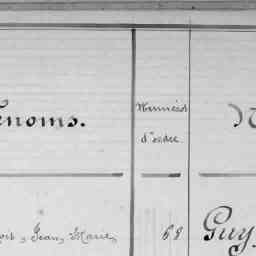 énoms.
Numéros
d'ordre
N
ois, Jean, Marie,
68
Guy